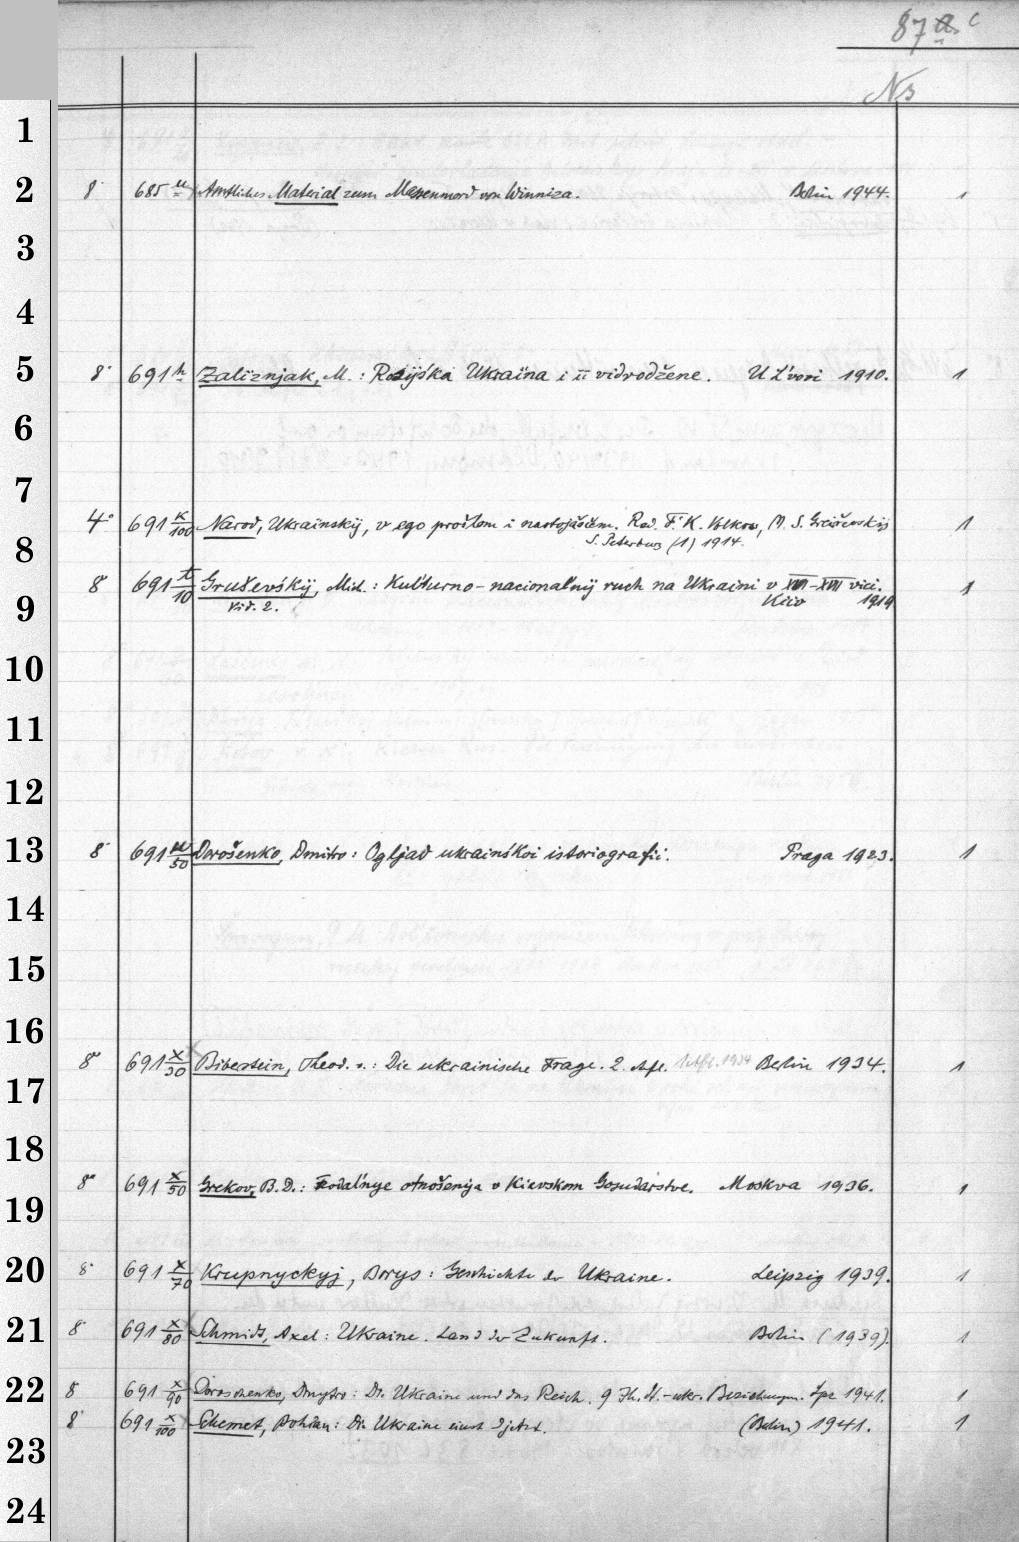 87 a. c
N3
1
2 8° 685 u Amtliches Material zum Massenmord von Winniza. Berlin 1944. 1
3
4
5 8° 691 h Zaliznjak, M.: Rosijśka Ukraïna i ïï vidrodžene. U L'vovi 1910. 1
6
7
4° 691 K/100 Narod, Ukrainskij, v ego prošlom i nastojaščem. Red. F. K. Volkov, M. S. Grúševskij 1
8 S. Peterburg (1) 1914.
8° 691 t/10 Gruševśkij, Mich.: Kul'turno-nacional'nij ruch na Ukraini v XVI-XVII vici. 1
9 Vid. 2. Kiiv 1919
10
11
12
13 8° 691 u/50 Dorošenko, Dmitro: Ogljad ukrainśkoi istoriografii. Praga 1923. 1
14
15
16
8° 691 x/30 Biberstein, Theod. v.: Die ukrainische Frage. 2. Afl. 1. Afl. 1934 Berlin 1934. 1
17
18
8° 691 x/50 Grekov, B. D.: Feodal'nye otnošenija v Kievskom Gosudarstve. Moskva 1936. 1
19
20 8° 691 x/70 Krupnyckyj, Borys: Geschichte der Ukraine. Leipzig 1939. 1
21 8° 691 x/80 Schmidt, Axel: Ukraine. Land der Zukunft. Berlin (1939). 1
22 8° 691 x/90 Doroschenko, Dmytro: Die Ukraine und das Reich. 9 Jh. dt.-ukr. Beziehungen. Lpz 1941. 1
8° 691 x/100 Schemet, Bohdan: Die Ukraine einst u jetzt. (Berlin) 1941. 1
23
24